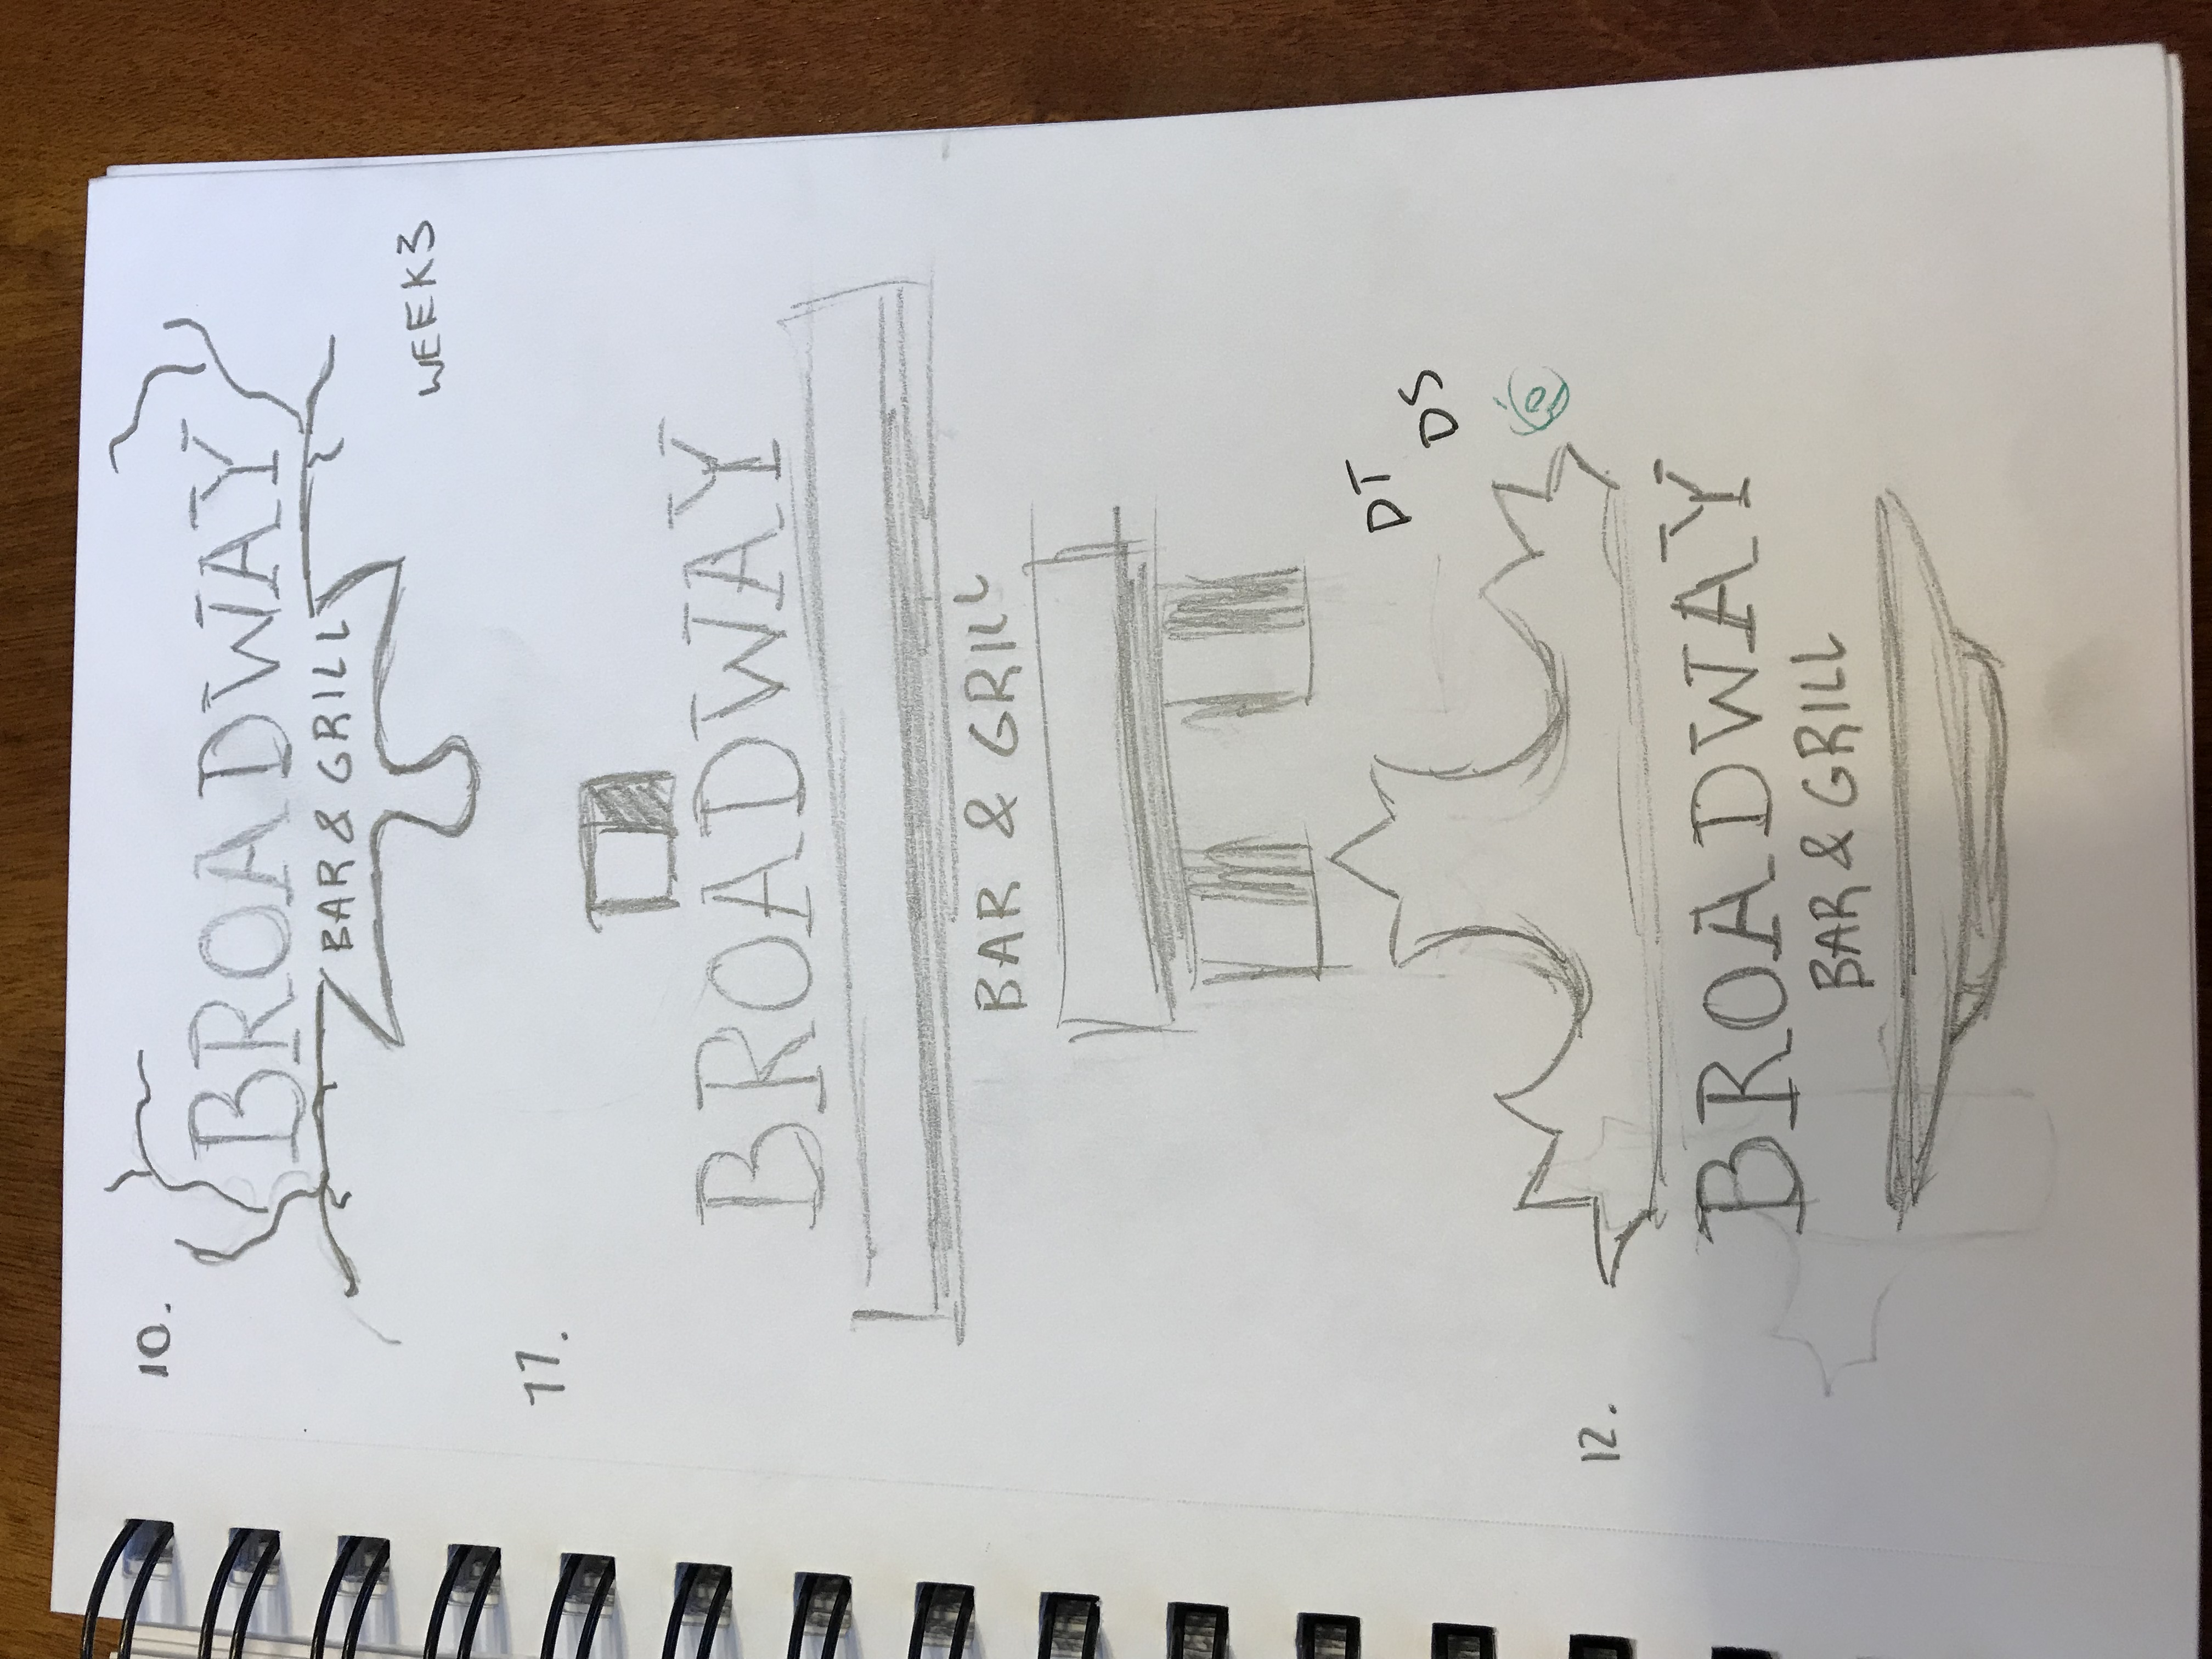 10.
BROADWAY
BAR & GRILL
WEEK3
11.
BROADWAY
BAR & GRILL
DT
DS
12.
BROADWAY
BAR & GRILL